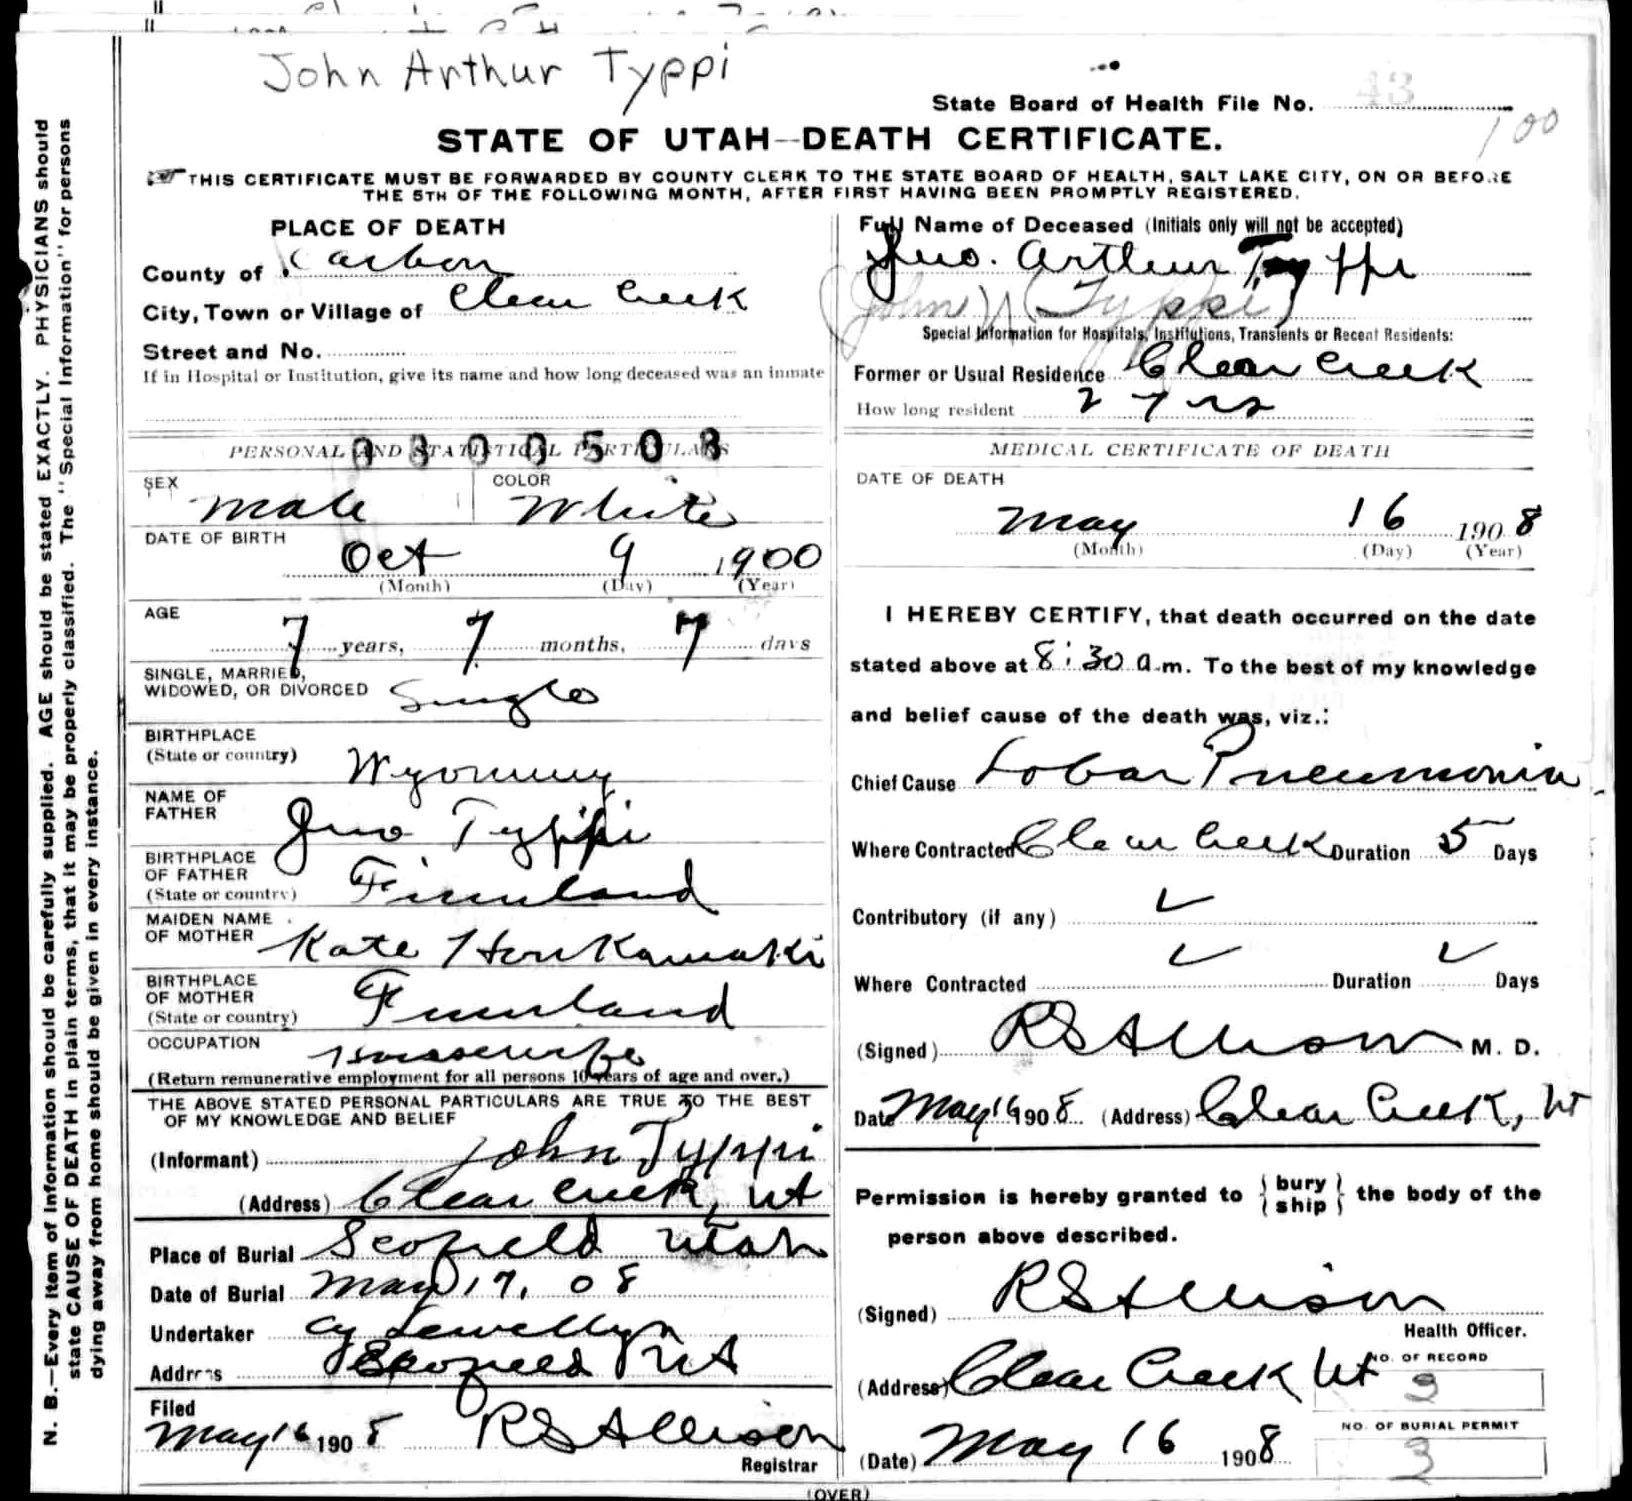 John Arthur Typpi
State Board of Health File No. 43
100
STATE OF UTAH--DEATH CERTIFICATE.
THIS CERTIFICATE MUST BE FORWARDED BY COUNTY CLERK TO THE STATE BOARD OF HEALTH, SALT LAKE CITY, ON OR BEFORE
THE 5TH OF THE FOLLOWING MONTH, AFTER FIRST HAVING BEEN PROMPTLY REGISTERED.
N. B.—Every item of information should be carefully supplied. AGE should be stated EXACTLY. PHYSICIANS should
state CAUSE OF DEATH in plain terms, that it may be properly classified. The "Special Information" for persons
dying away from home should be given in every instance.
PLACE OF DEATH
County of Carbon
City, Town or Village of Clear Creek
Street and No.
If in Hospital or Institution, give its name and how long deceased was an inmate
0300508
PERSONAL AND STATISTICAL PARTICULARS
SEX Male COLOR White
DATE OF BIRTH
Oct 9 1900
(Month) (Day) (Year)
AGE
7 years, 7 months, 7 days
SINGLE, MARRIED,
WIDOWED, OR DIVORCED Single
BIRTHPLACE
(State or country) Wyoming
NAME OF
FATHER Jno Typpi
BIRTHPLACE
OF FATHER
(State or country) Finnland
MAIDEN NAME
OF MOTHER Kate
BIRTHPLACE
OF MOTHER
(State or country) Finnland
OCCUPATION
(Return remunerative employment for all persons 10 years of age and over.)
THE ABOVE STATED PERSONAL PARTICULARS ARE TRUE TO THE BEST
OF MY KNOWLEDGE AND BELIEF
(Informant) John Typpi
(Address) Clear Creek, Ut
Place of Burial Scofield Utah
Date of Burial May 17, 08
Undertaker Lewellyn
Address Scofield Ut
Filed
May 16 1908 RS Allison
Registrar
Full Name of Deceased (Initials only will not be accepted)
Jno. Arthur Typpi
(John) (Typpi)
Special Information for Hospitals, Institutions, Transients or Recent Residents:
Former or Usual Residence Clear Creek
How long resident 2 yrs
MEDICAL CERTIFICATE OF DEATH
DATE OF DEATH
May 16 1908
(Month) (Day) (Year)
I HEREBY CERTIFY, that death occurred on the date
stated above at 8:30 a.m. To the best of my knowledge
and belief cause of the death was, viz.:
Chief Cause Lobar Pneumonia
Where Contracted Clear Creek Duration 5 Days
Contributory (if any) ✓
Where Contracted ✓ Duration ✓ Days
(Signed) RS Allison M. D.
Date May 16 1908 (Address) Clear Creek, Ut
Permission is hereby granted to { bury ship } the body of the
person above described.
(Signed) RS Allison
Health Officer.
(Address) Clear Creek Ut
NO. OF RECORD
3
(Date) May 16 1908
NO. OF BURIAL PERMIT
3
(OVER)